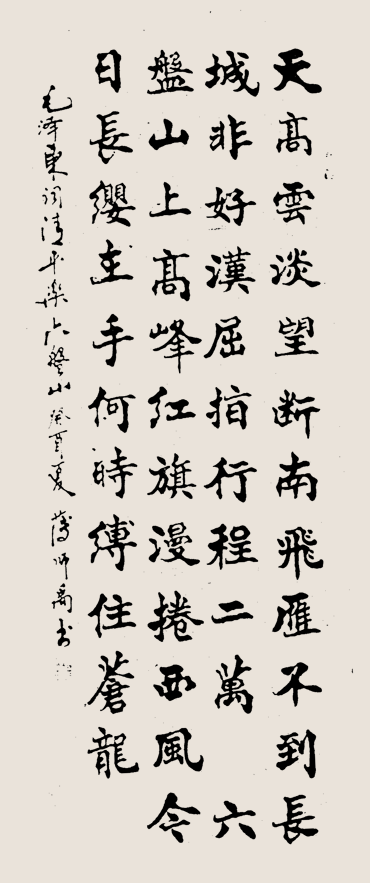 天髙雲淡望断南飛雁不到長
城非好漢屈指行程二萬六
盤山上髙峰紅旗漫捲西風今
日長纓在手何時縛住蒼龍
毛泽東词清平樂六盤山癸酉夏 薄师禹书